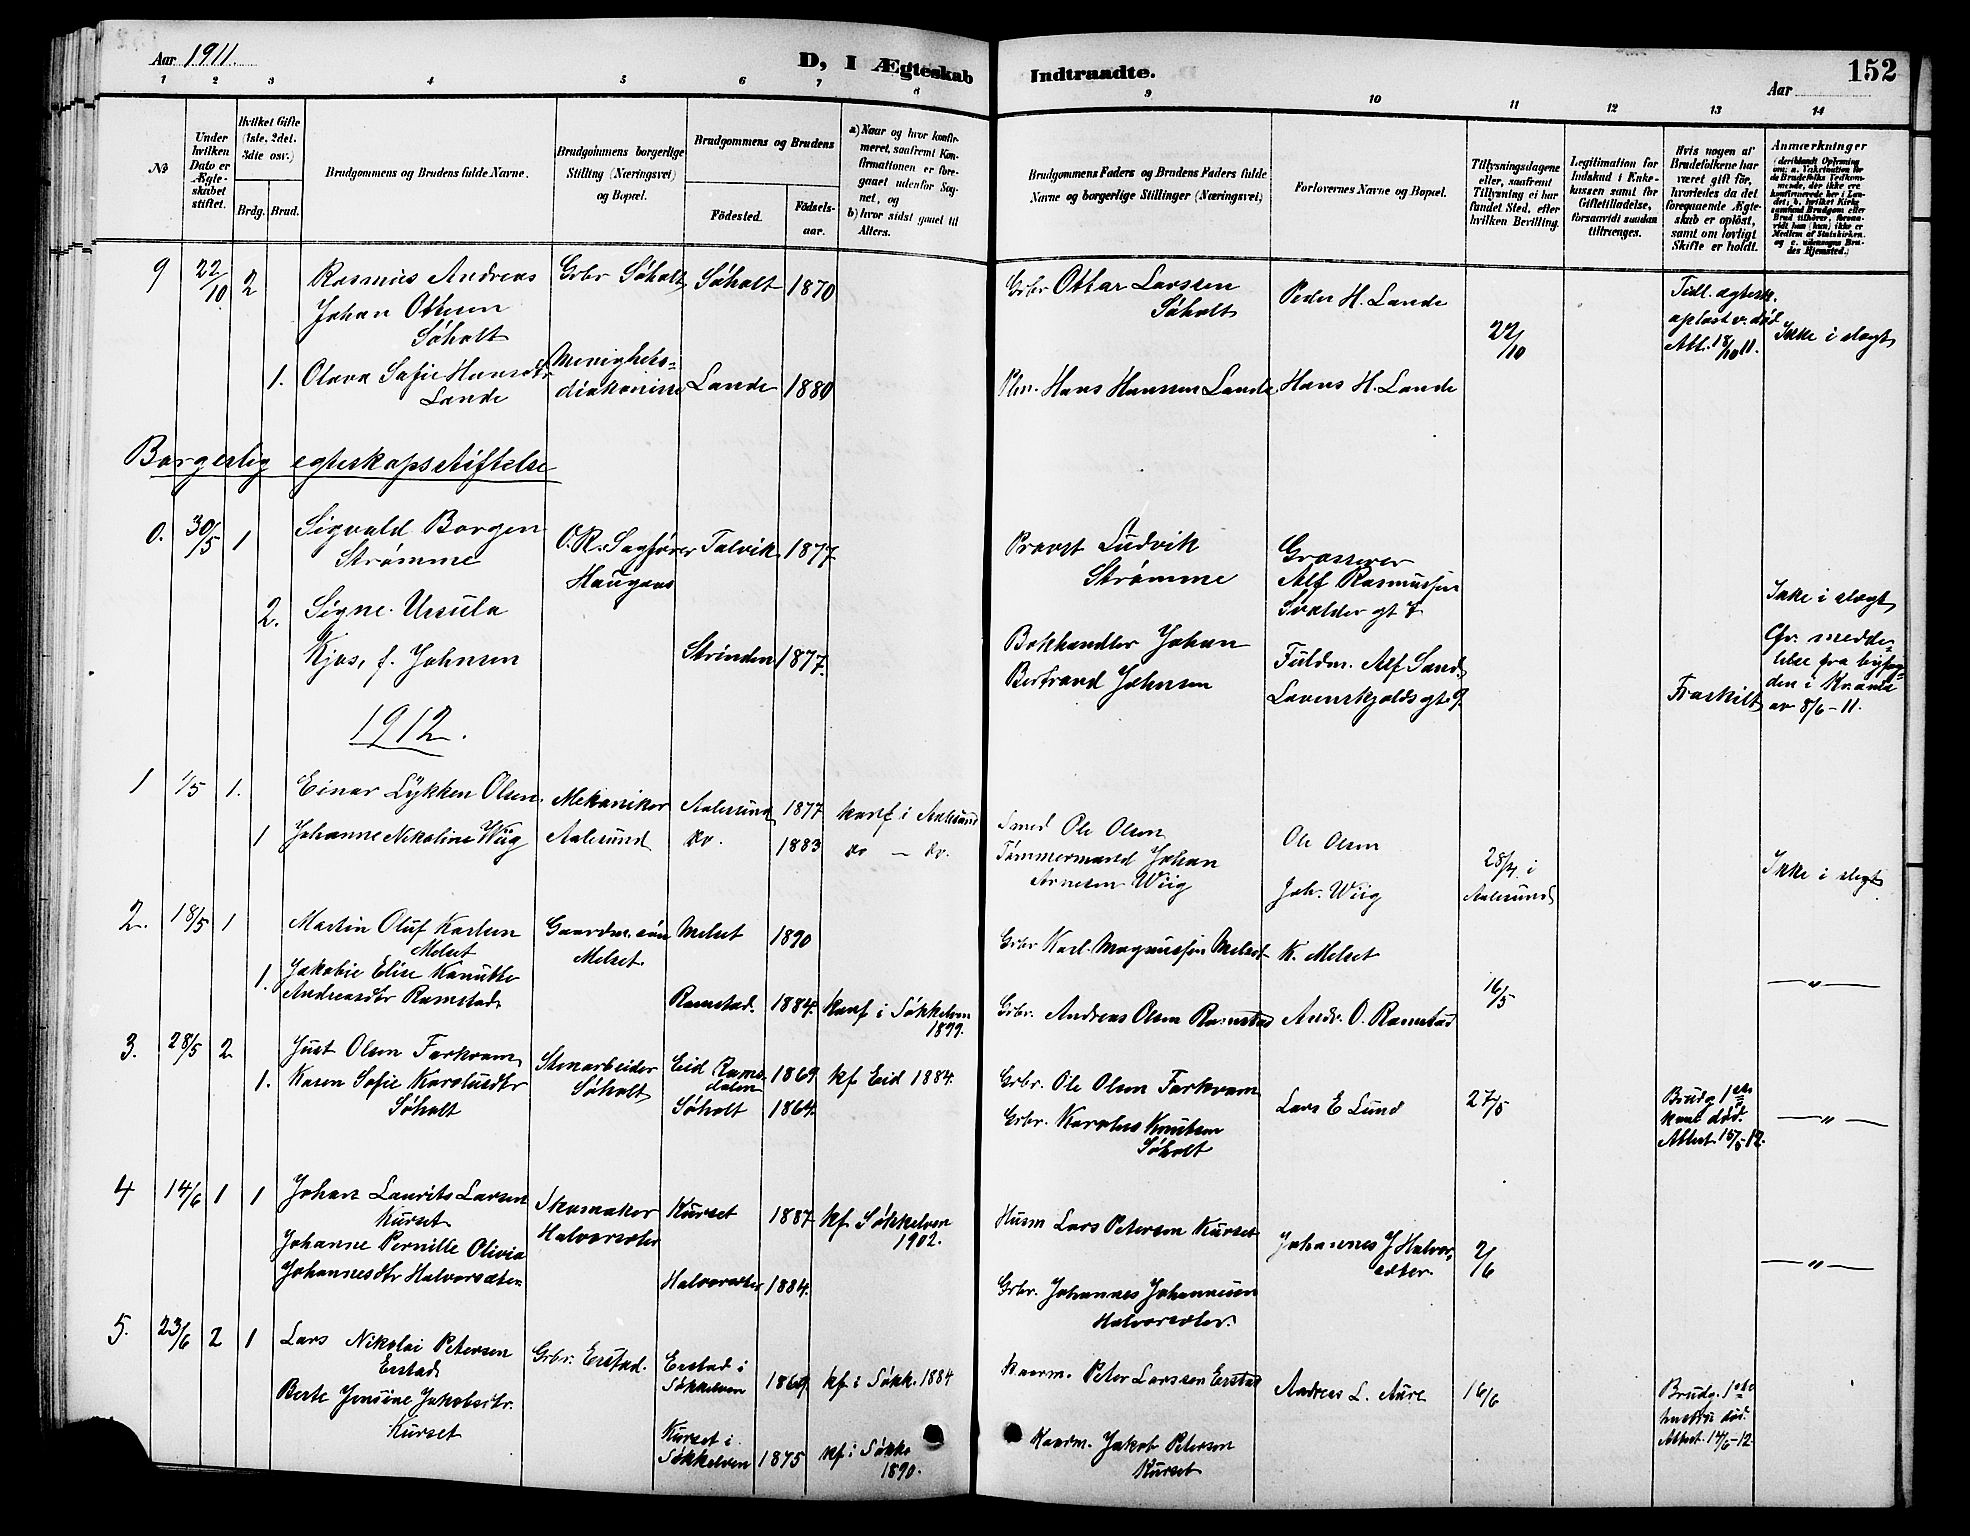 Aar 1911.
D, I Ægteskab Indtraadte.
152
Aar
1 2 3 4 5 6 7 8 9 10 11 12 13 14
No
Under hvilken Dato er Ægteskabet stiftet.
Hvilket Gifte (1ste, 2det, 3die osv.)
Brdg. Brud.
Brudgommens og Brudens fulde Navne.
Brudgommens borgerlige Stilling (Næringsvei) og Bopæl.
Brudgommens og Brudens
Fødested.
Fødselsaar.
a) Naar og hvor konfirmeret, saafremt Konfirmationen er foregaaet udenfor Sognet, og
b) hvor sidst gaaet til Alters.
Brudgommens Faders og Brudens Faders fulde Navne og borgerlige Stillinger (Næringsvei)
Forlovernes Navne og Bopæl.
Tillysningsdagene eller, saafremt Tillysning ei har fundet Sted, efter hvilken Bevilling.
Legitimation for Indskud i Enkekassen samt for Giftetilladelse, forsaavidt saadan tiltrænges.
Hvis nogen af Brudefolkene har været gift før, hvorledes da det foregaaende Ægteskab er opløst, samt om lovligt Skifte er holdt.
Anmærkninger
9 22/10 2 Rasmus Andreas Johan Ottesen Søholt
Grbr Søholt Søholt 1870
Grbr Ottar Larssen Søholt
Peder H. Lande
22/10
Tidl. egtesk. opløst v. død Att. 18/10 11.
Ikke i slegt
1. Olava Sofie Hansdtr Lande
Menighetsdiakonisse Lande 1880
Hans Hanssen Lande
Hans H. Lande
Borgerlig egteskapsstiftelse
0. 30/5 1 Sigvald Borgen Strømme
O.R. Sagfører Haugens Talvik 1877
Provst Ludvik Strømme
Grosserer Alf Rasmussen Svolder gt 7
2. Signe Ursula Kjos, f. Johnsen
Strinden 1877.
Bokhandler Johan Bertrand Johnsen
Fuldm. Alf Sand, Løvenskjolds gt 9.
Fraskilt
Ikke i slegt
Cfr. meddelelse fra byfogden i Krania av 8/6-11.
1912.
1 1/5 1. Einar Lykken Olsen
Mekaniker Aalesund Aalesund 1877 konf i Aalesund
Smed Ole Olsen
Ole Olsen
1 Johanne Nikoline Wiig
do. 1883 do - do.
Tømmermand Johan Arnesen Wiig
Joh. Wiig
28/4 i Aalesund
Ikke i slegt
2. 18/5 1 Martin Oluf Karlsen Melset
Gaardm. søn Melset Melset 1890
Grbr Karl Magnussen Melset
K. Melset
1. Jakobie Elise Kanutte Andreasdtr Ramstad
Ramstad. 1884. konf i Søkkelven 1899.
Grbr. Andreas Olsen Ramstad
Andr. O. Ramstad
16/5
— " —
3. 28/5 2 Just Olsen Farkvam
Stenarbeider Søholt Eid Ramsdalen 1869 kf Eid 1884.
Grbr. Ole Olsen Farkvam
1. Karen Sofie Karolusdtr Søholt
Søholt 1864.
Grbr. Karolus Knutsen Søholt
Lars E Lund
27/5
Brudg 1ste kone død. Attest 15/5-12.
— " —
4 14/6 1 1 Johan Laurits Larsen Kurset
Skomaker Halvorsæter Kurset 1887 kf Søkkelven 1902.
Husm Lars Petersen Kurset
Johanne Pernille Olivia Johannesdtr Halvorsæter
Halvorsæter 1884.
Grbr. Johannes Johannesen Halvorsæter.
Johannes J Halvorsæter.
2/6
— " —
5. 23/6 2 1 Lars Nikolai Petersen Erstad
Grbr. Erstad. Erstad i Søkkelven 1869 kf i Søkk. 1884
Kaarm. Peter Larssen Erstad
Andreas L. Aure
16/6
Brudg. 1ste hustru død. Attest. 14/6-12.
Berte Jensine Jakobsdtr. Kurset
Kurset i Søkkelven 1875 kf i Søkke 1890.
Kaarm. Jakob Petersen Kurset